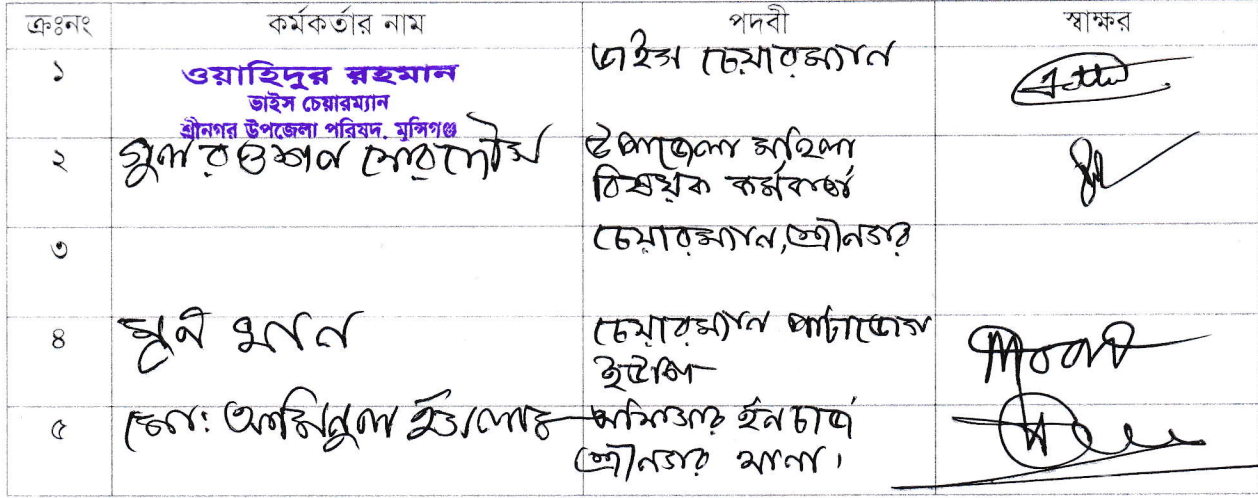 ক্রঃনং কর্মকর্তার নাম পদবী স্বাক্ষর
১ ওয়াহিদুর রহমান ভাইস চেয়ারম্যান
ভাইস চেয়ারম্যান
শ্রীনগর উপজেলা পরিষদ, মুন্সিগঞ্জ
২ গুল রওশন ফেরদৌস উপজেলা মহিলা
বিষয়ক কর্মকর্তা
৩ চেয়ারম্যান, শ্রীনগর
৪ খান চেয়ারম্যান পাটাভোগ
ইউপি
৫ মো: আমিনুল ইসলাম অফিসার ইনচার্জ
শ্রীনগর থানা।